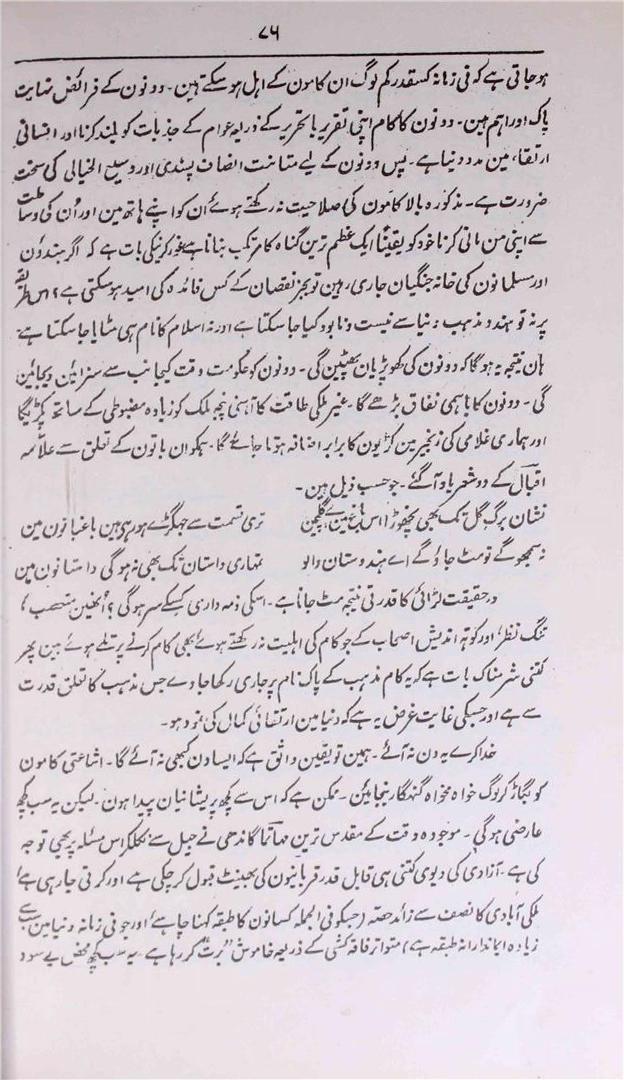 ۷۶
ہوجاتی ہے کہ فی زمانہ کسقدر کم لوگ ان کامون کے اہل ہوسکتے ہین۔ دونون کے فرائض نہایت
پاک اور اہم ہین۔ دونون کا کام اپنی تقریر یا تحریر کے ذریعہ عوام کے جذبات کو بلند کرنا اور انسانی
ارتقاء مین مدد دینا ہے۔ پس دونون کے لیے متانت انصاف پسندی اور وسیع الخیالی کی سخت
ضرورت ہے۔ مذکورہ بالا کامون کی صلاحیت نہ رکھتے ہوئے ان کو اپنے ہاتھ مین اور اُن کی وساطت
سے اپنی من مانی کرنا خود کو یقیناً ایک عظیم ترین گناہ کا مرتکب بنانا ہے غور کرنیکی بات ہے کہ اگر ہندؤن
اور مسلمانون کی خانہ جنگیان جاری رہین تو بجز نقصان کے کس فائدہ کی امید ہوسکتی ہے؟ اس طریقے
پر نہ تو ہندو مذہب دنیا سے نیست ونابود کیا جاسکتا ہے اور نہ اسلام کا نام ہی مٹایا جاسکتا ہے۔
ہان نتیجہ یہ ہوگا کہ دونون کی کھوپڑیان پھٹین گی۔ دونون کو حکومت وقت کیجانب سے سزائین دیجائین
گی۔ دونون کا باہمی نفاق بڑھے گا۔ غیر ملکی طاقت کا آہنی پنجہ ملک کو زیادہ مضبوطی کے ساتھ پکڑیگا
اور ہماری غلامی کی زنجیر مین کڑیون کا برابر اضافہ ہوتا جائے گا۔ ہمکو ان باتون کے تعلق سے علامہ
اقبال کے دو شعر یاد آگئے۔ جو حسب ذیل ہین۔
نشان برگ گل تک بھی نچھوڑ اس باغ مین گلچین تری قسمت سے جھگڑے ہورہے ہین باغبانون مین
نہ سمجھو گے تو مٹ جاؤ گے اے ہندوستان والو تمہاری داستان تک بھی نہ ہوگی داستانون مین
درحقیقت لڑائی کا قدرتی نتیجہ مٹ جانا ہے۔ اسکی ذمہ داری کسکے سر ہوگی؟ اُنھین متعصب،
تنگ نظر، اور کوتہ اندیش اصحاب کے جو کام کی اہلیت نہ رکھتے ہوئے بھی کام کرنے پر تلے ہوئے ہین پھر
کتنی شرمناک بات ہے کہ یہ کام مذہب کے پاک نام پر جاری رکھا جاوے جس مذہب کا تعلق قدرت
سے ہے اور جسکی غایت غرض یہ ہے کہ دنیا مین ارتقائی کمال کی نمود ہو۔
خدا کرے یہ دن نہ آئے۔ ہمین تو یقین واثق ہے کہ ایسا دن کبھی نہ آئے گا۔ اشاعتی کامون
کو بگاڑ کر لوگ خواہ مخواہ گنہگار بنجائین۔ ممکن ہے کہ اس سے کچھ پریشانیان پیدا ہون۔ لیکن یہ سب کچھ
عارضی ہوگی۔ موجودہ وقت کے مقدس ترین مہاتما گاندھی نے جیل سے نکلکر اس مسئلہ پر بھی توجہ
کی ہے۔ آزادی کی دیوی کتنی ہی قابل قدر قربانیون کی بھینٹ قبول کرچکی ہے اور کرتی جارہی ہے،
ملکی آبادی کا نصف سے زائد حصہ (جسکو فی الجملہ کسانون کا طبقہ کہنا چاہیے، اور جو فی زمانہ دنیا مین سب سے
زیادہ ایماندارانہ طبقہ ہے) متواتر فاقہ کشی کے ذریعہ خاموش "برت" کررہا ہے۔ یہ سب کچھ محض بے سود